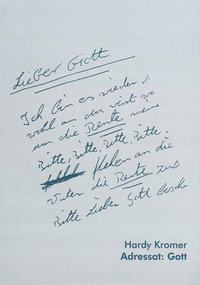 Lieber Gott
Ich bin es wieder
wohl an du
um die Rente meine
Bitte, Bitte, Bitte, Bitte.
flehen an die
Vater die Rente
Bitte lieber Gott
Hardy Kromer
Adressat: Gott